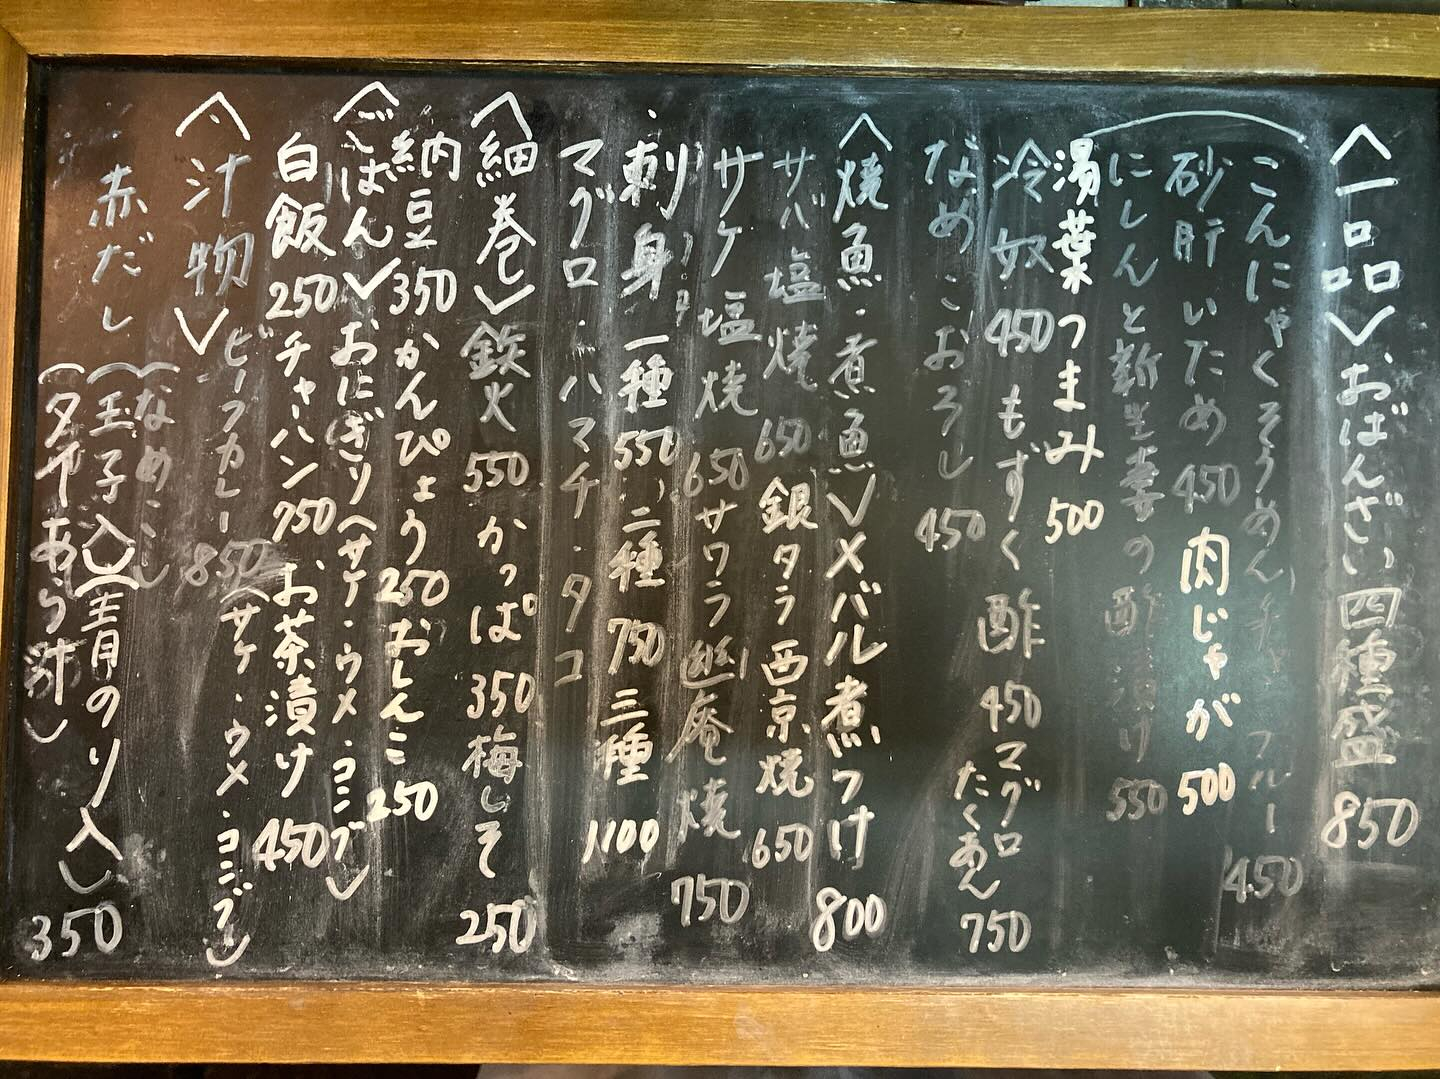 〈一品〉おばんざい四種盛 850
こんにゃくそうめんチャンプルー 450
砂肝いため 450 肉じゃが 500
にしんと新生姜の酢漬け 550
湯葉つまみ 500
冷奴 450 もずく酢 450 マグロたくあん 750
なめこおろし 450
〈焼魚・煮魚〉メバル煮つけ 800
サバ塩焼 650 銀タラ西京焼 650
サケ塩焼 650 サワラ幽庵焼 750
刺身 一種 550 二種 750 三種 1100
マグロ・ハマチ・タコ
〈細巻〉鉄火 550 かっぱ 350 梅しそ 250
納豆 350 かんぴょう 250 おしんこ 250
〈ごはん〉おにぎり(サケ・ウメ・コンブ)
白飯 250 チャーハン 750 お茶漬け 450
(サケ・ウメ・コンブ)
ビーフカレー 850
〈汁物〉
赤だし
(なめこ)
(玉子入)(青のり入) 350
(タイあら汁)